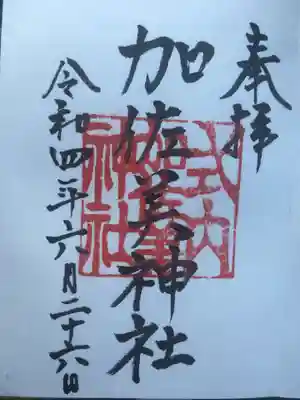 奉拝
加佐美神社
令和四年六月二十六日
式内
加佐美
神社